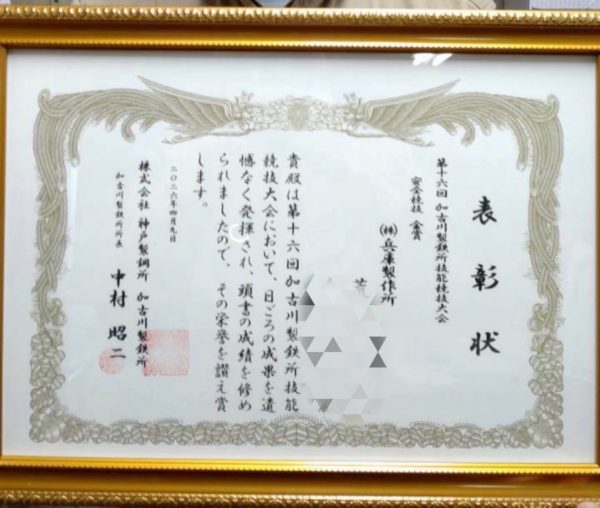 表彰状
第十六回 加古川製鉄所技能競技大会
製缶競技 金賞
㈱兵庫製作所
荒
貴殿は第十六回加古川製鉄所技能
競技大会において、日ごろの成果を遺
憾なく発揮され、頭書の成績を修め
られましたので、その栄誉を讃え賞
します。
二〇二六年四月九日
株式会社 神戸製鋼所 加古川製鉄所
加古川製鉄所所長 中村 昭二